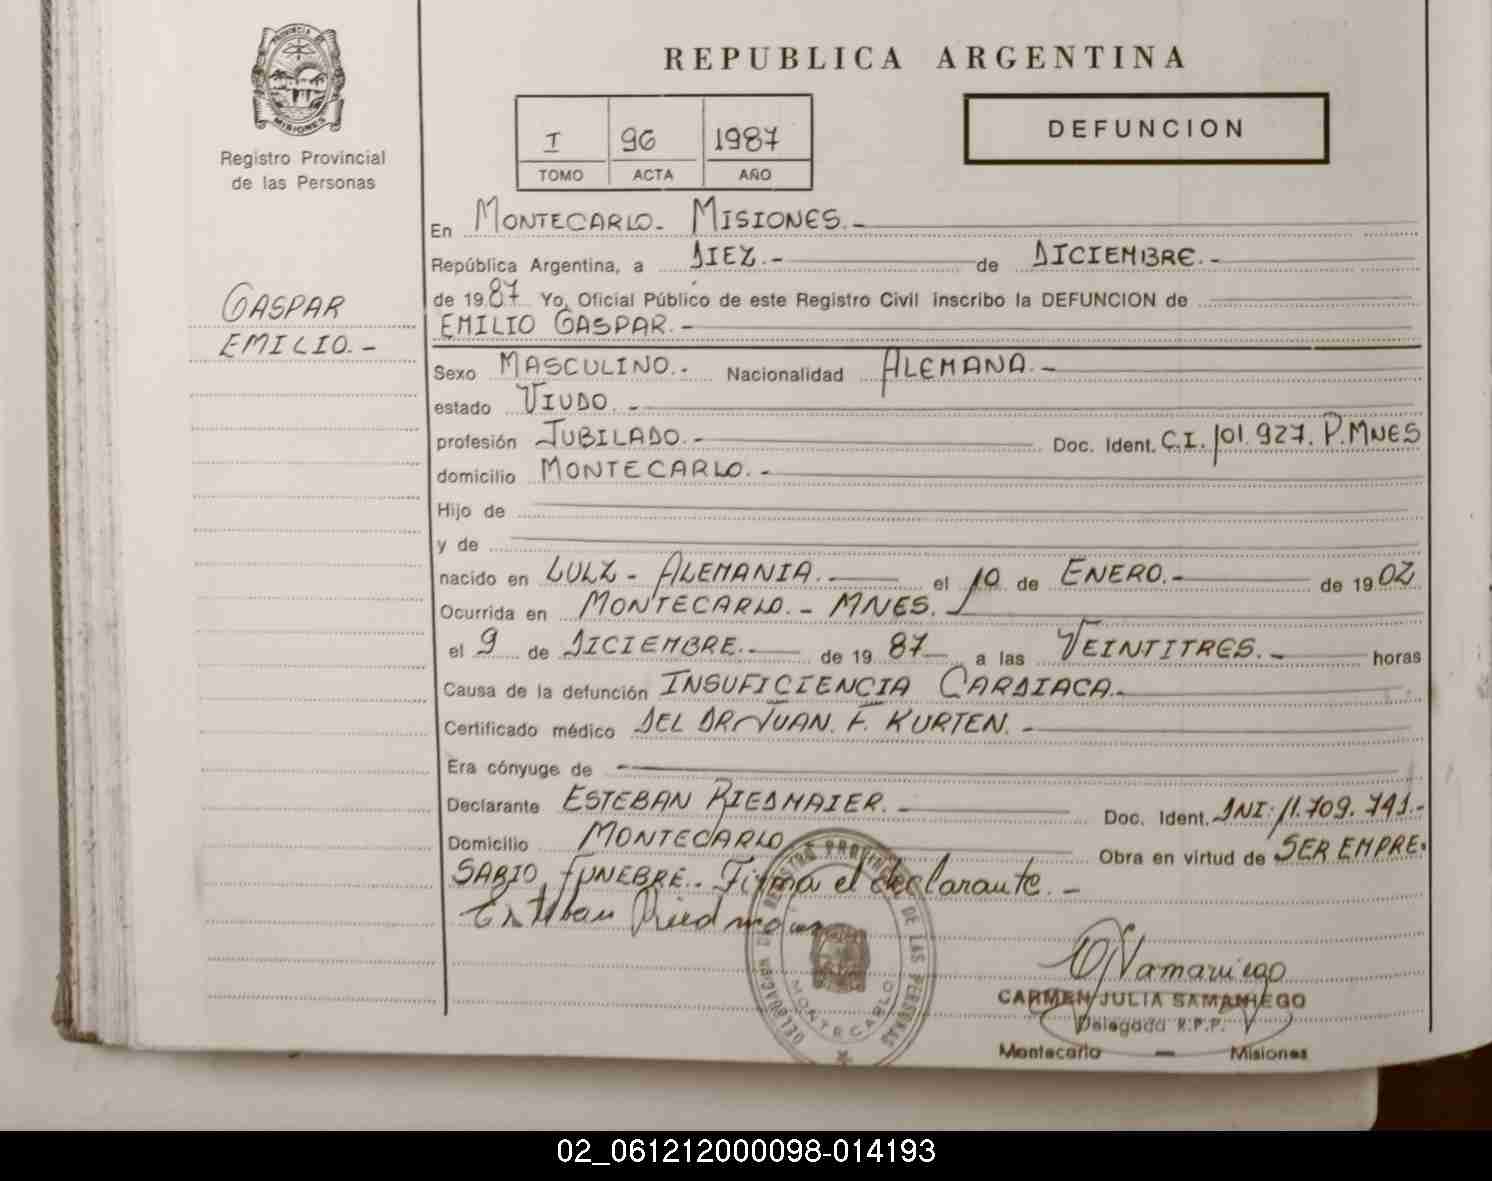 REPUBLICA ARGENTINA
PROVINCIA DE
MISIONES
Registro Provincial
de las Personas
I 96 1987
TOMO ACTA AÑO
DEFUNCION
GASPAR
EMILIO. -
En MONTECARLO. MISIONES. -
República Argentina, a DIEZ. - de DICIEMBRE. -
de 1987 Yo, Oficial Público de este Registro Civil inscribo la DEFUNCION de
EMILIO GASPAR. -
Sexo MASCULINO. - Nacionalidad ALEMANA. -
estado VIUDO. -
profesión JUBILADO. - Doc. Ident. C.I. 101.927. P.MNES
domicilio MONTECARLO. -
Hijo de
y de
nacido en LULZ - ALEMANIA. - el 10 de ENERO. - de 1902
Ocurrida en MONTECARLO. - MNES.
el 9 de DICIEMBRE. - de 1987 a las VEINTITRES. - horas
Causa de la defunción INSUFICIENCIA CARDIACA. -
Certificado médico DEL DR JUAN. F. KURTEN. -
Era cónyuge de
Declarante ESTEBAN RIEDMAIER. - Doc. Ident. DNI: 11.709.741. -
Domicilio MONTECARLO Obra en virtud de SER EMPRE.
SARIO FUNEBRE. . Firma el declarante. -
Esteban Riedmaier
DELEGACION DE REGISTRO PROVINCIAL DE LAS PERSONAS
MONTECARLO
CARMEN JULIA SAMANIEGO
Delegada R.P.P.
Montecarlo — Misiones
02_061212000098-014193